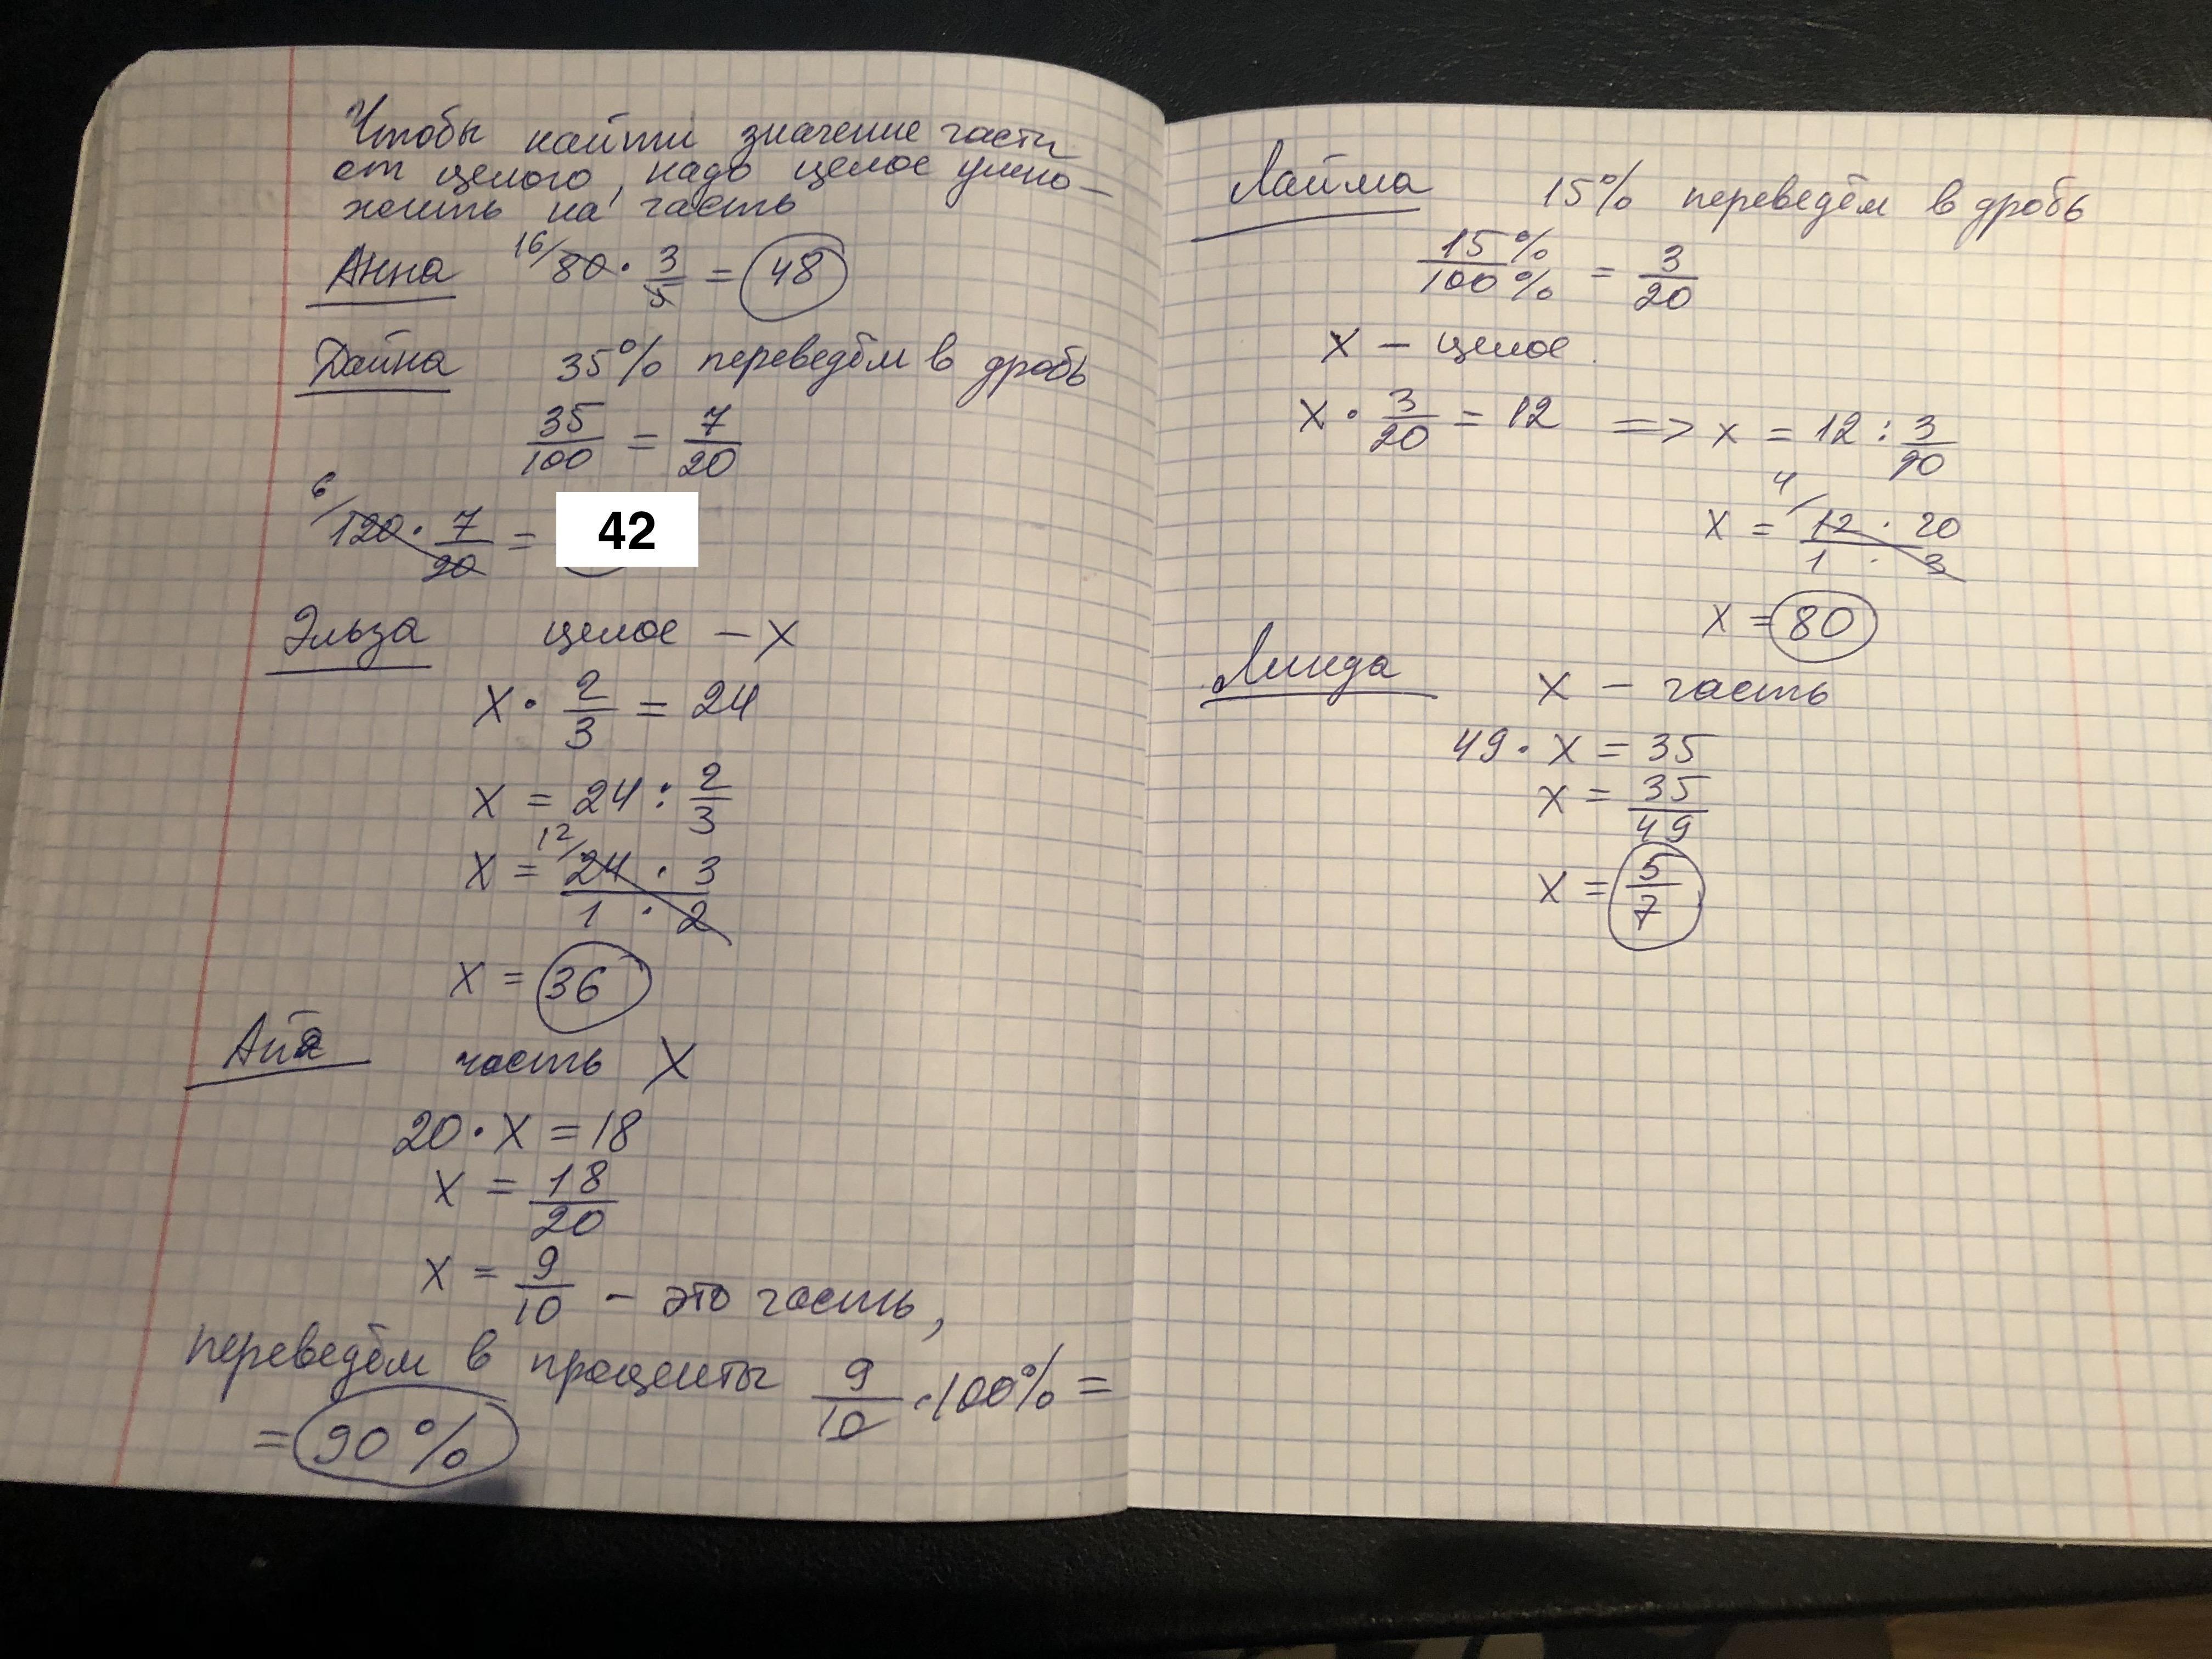 Чтобы найти значение части
от целого, надо целое умно-
жить на часть
Анна 16/80 · 3/5 = 48
Дайна 35% переведём в дробь
35/100 = 7/20
6/120 · 7/20 = 42
Эльза целое – x
x · 2/3 = 24
x = 24 : 2/3
x = 12/24 · 3 / 1 · 2
x = 36
Айя часть x
20 · x = 18
x = 18/20
x = 9/10 – это часть,
переведём в проценты 9/10 · 100% =
= 90%
Лайма 15% переведём в дробь
15%/100% = 3/20
x – целое.
x · 3/20 = 12 => x = 12 : 3/20
x = 4/12 · 20 / 1 · 3
x = 80
Линда x – часть
49 · x = 35
x = 35/49
x = 5/7